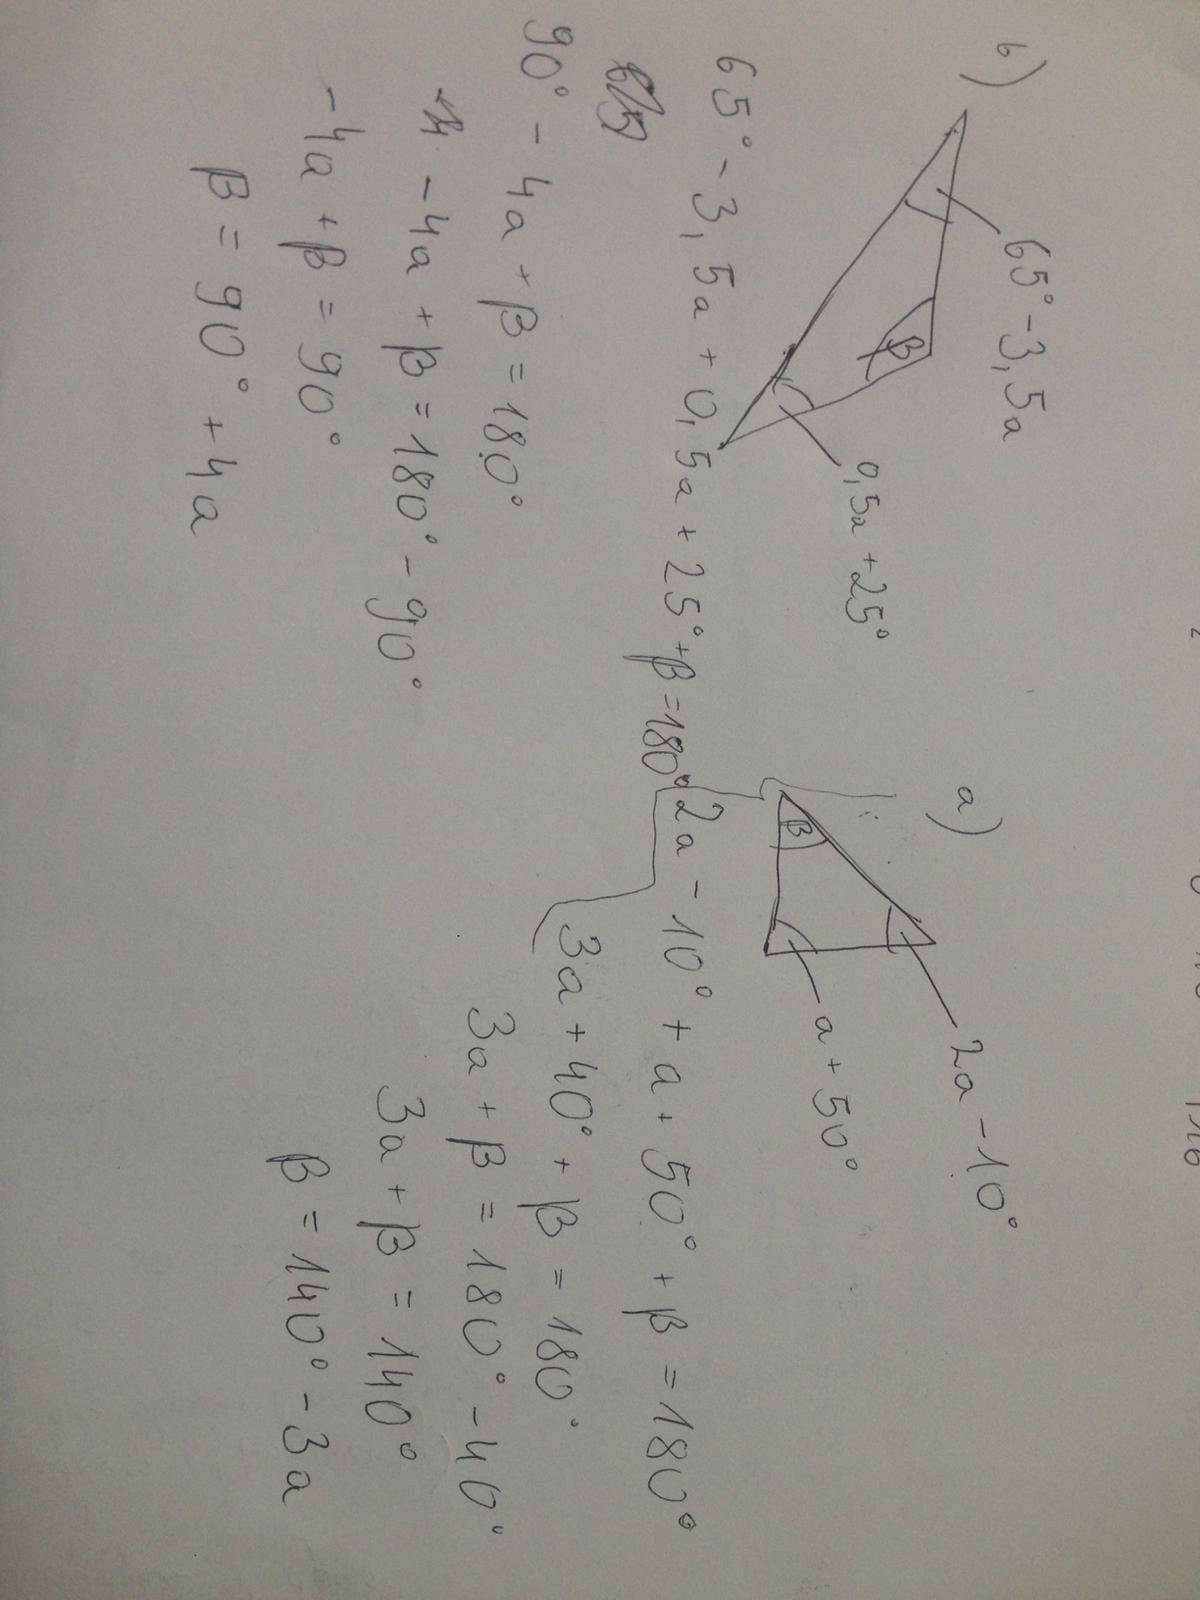 b)
65° - 3,5a
β
0,5a + 25°
65° - 3,5a + 0,5a + 25° + β = 180°
90° - 4a + β = 180°
- 4a + β = 180° - 90°
- 4a + β = 90°
β = 90° + 4a
a)
2a - 10°
β
a + 50°
2a - 10° + a + 50° + β = 180°
3a + 40° + β = 180°
3a + β = 180° - 40°
3a + β = 140°
β = 140° - 3a